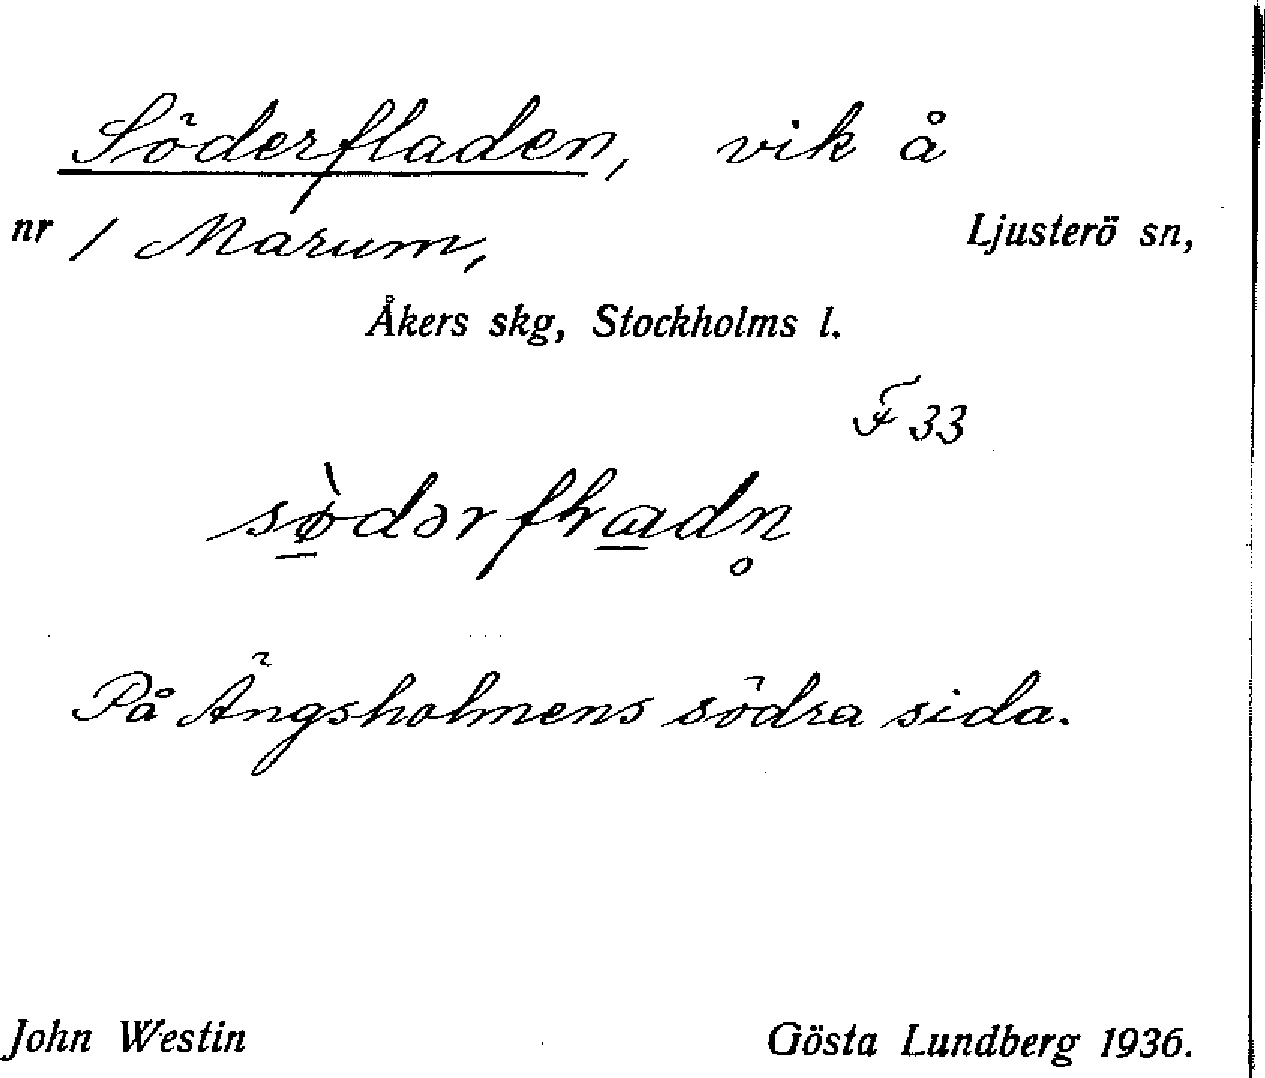 Söderfladen, vik å
nr 1 Marum, Ljusterö sn,
Åkers skg, Stockholms l.
F 33
På Ängsholmens södra sida.
John Westin Gösta Lundberg 1936.